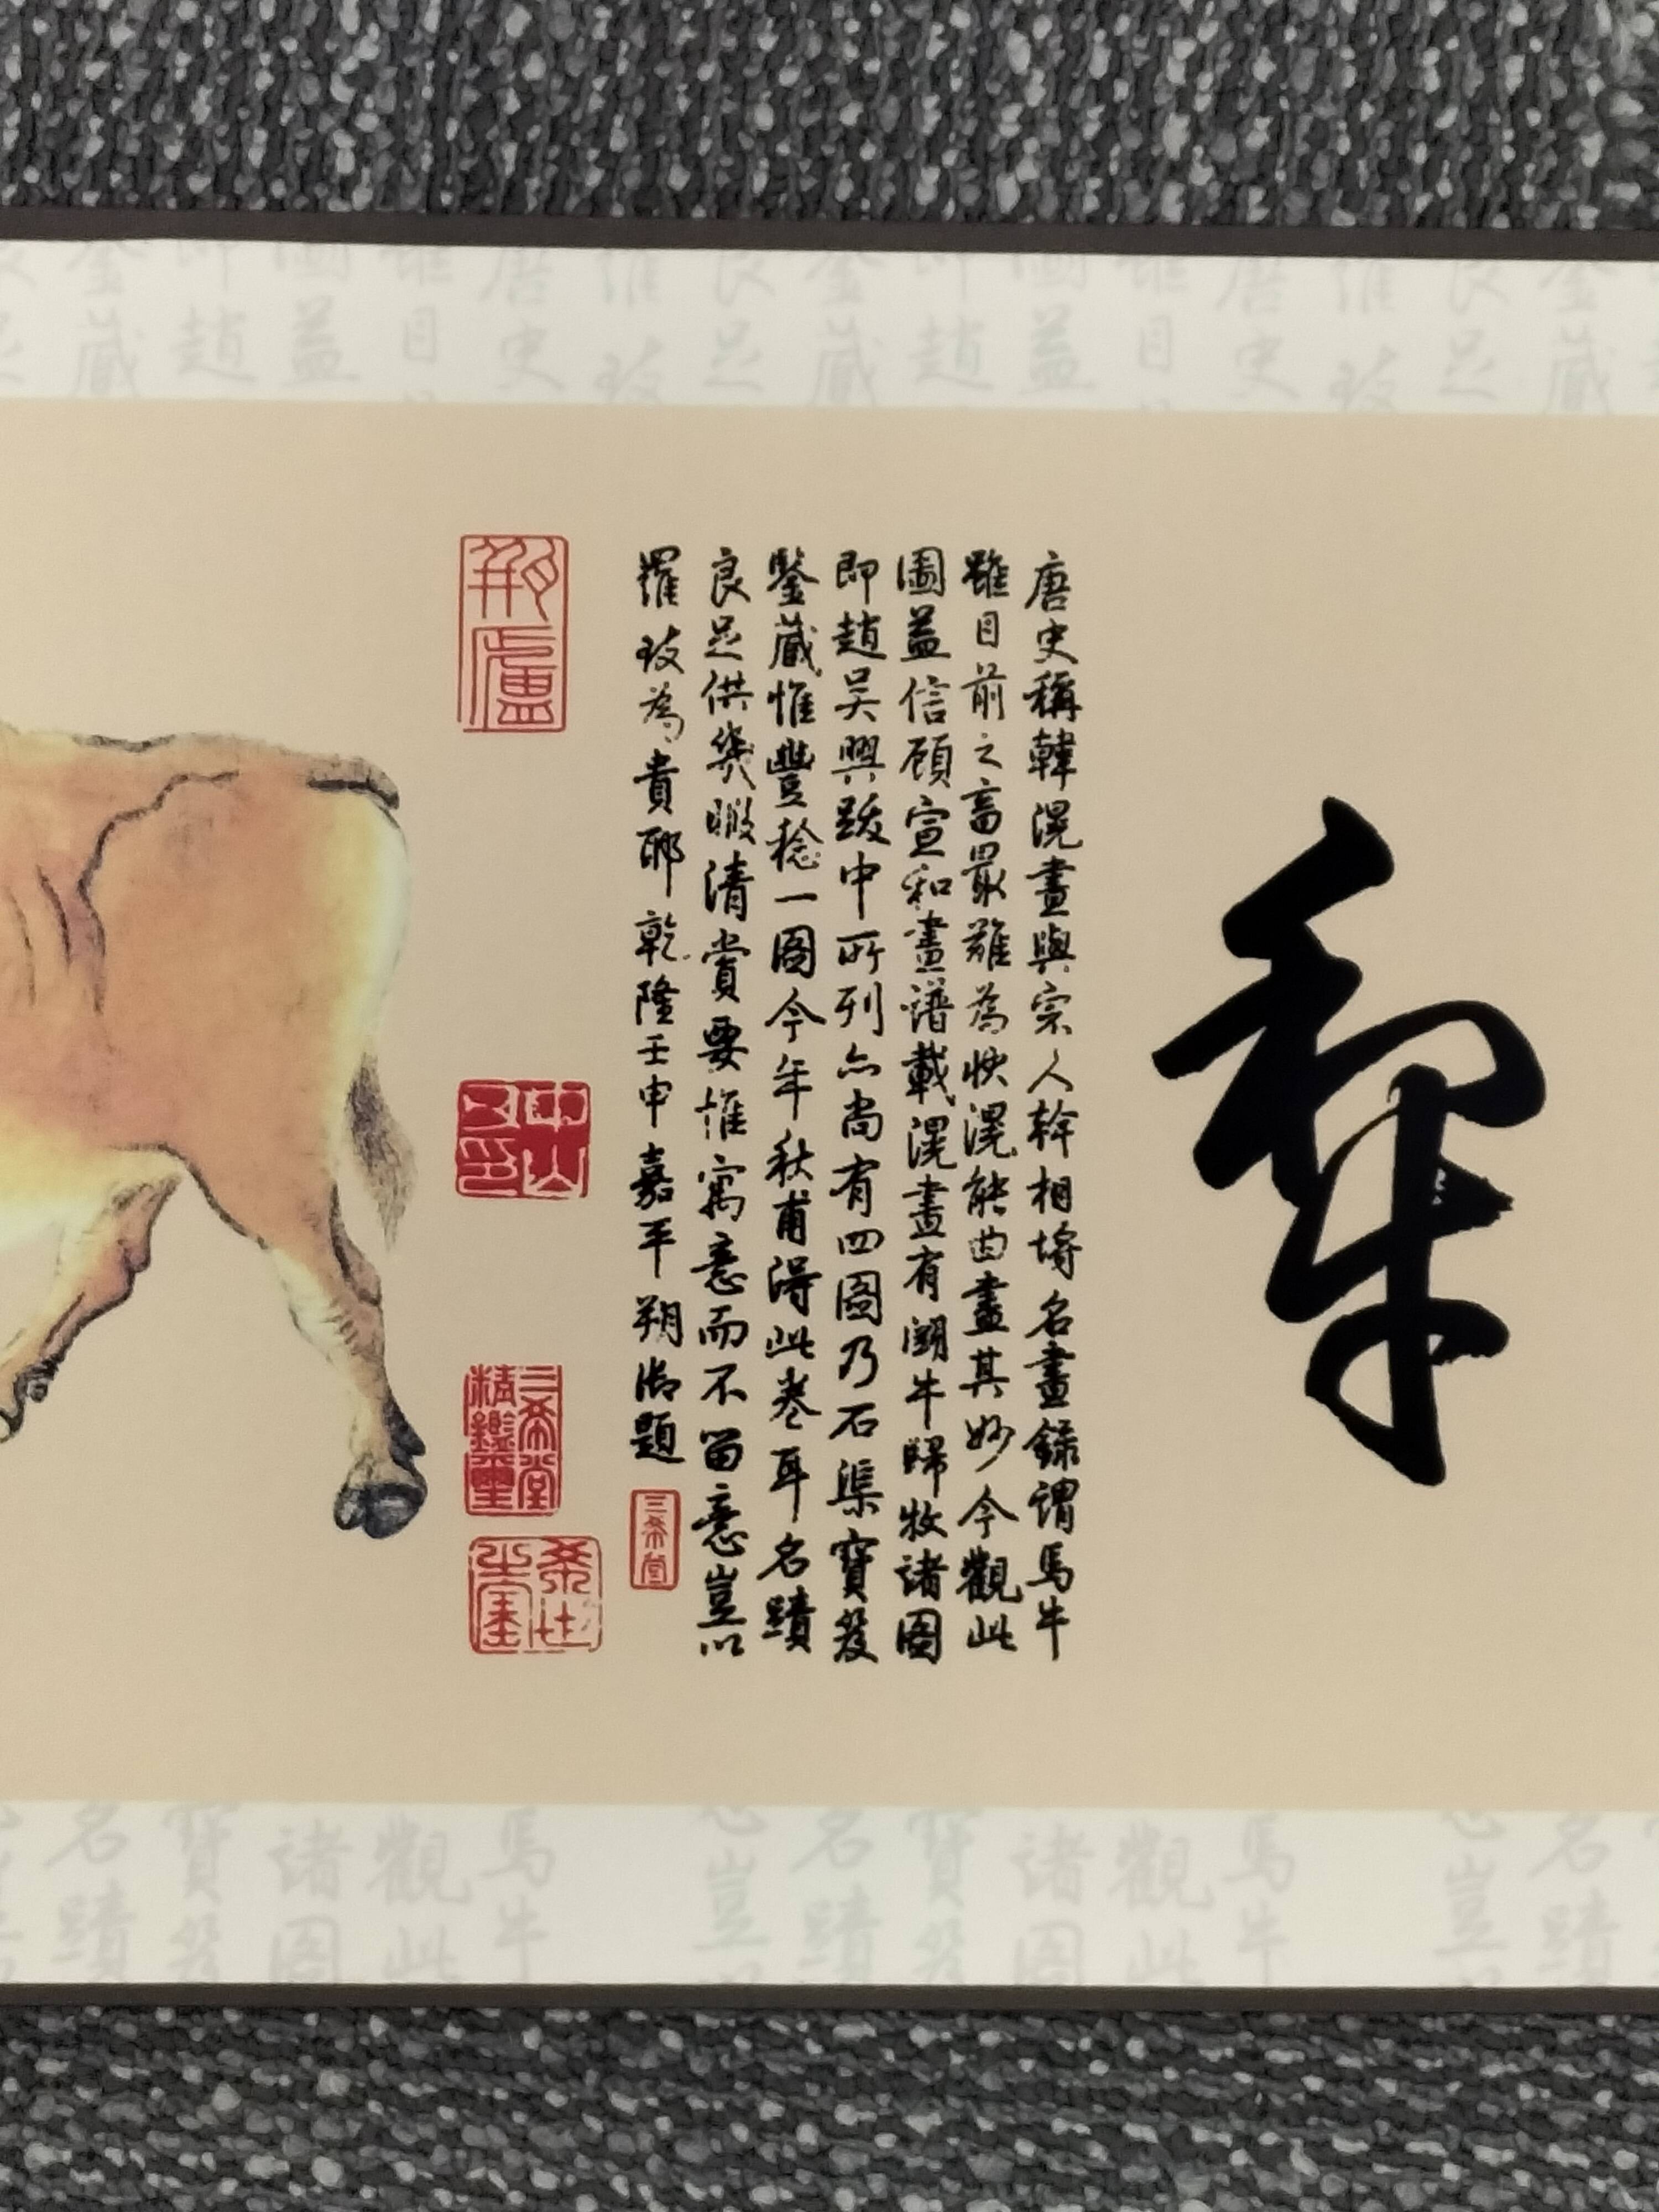 犁
唐史稱韓滉畫與宗人幹相埒名畫錄謂馬牛
雖目前之畜最難為快滉能曲盡其妙今觀此
圖益信顧宣和畫譜載滉畫有鬭牛歸牧諸圖
即趙吳興跋中所列亦尚有四圖乃石渠寶笈
鑒藏惟豐稔一圖今年秋甫得此卷耳名蹟
良足供幾暇清賞要惟寓意而不留意豈以
羅致為貴耶乾隆壬申嘉平朔御題
三希堂
三希堂
精鑑璽